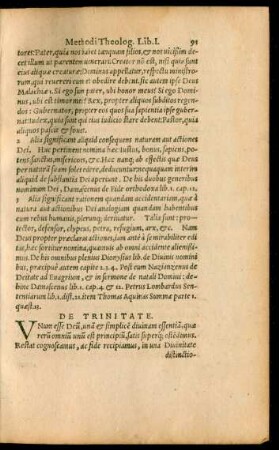 Methodi Theolog. Lib. I. 91
tores: Pater, quia nos habet tanquam filios, & nos uicissim de-
cet illum ut parentem uenerari. Creator nõ est, nisi quia sunt
eius aliquæ creaturæ Dominus appellatur, respectu ministro-
rum, qui reuereri eum & obedire ei debent: sicut ait ipse Deus
Malachiæ 1. Si ego pater, ubi honor meus? Si ego Domi-
nus, ubi est timor me? Rex, propter aliquos subditos re-
gendos: Gubernator, propter eos quos sua sapientia ipse guber-
nat: Iudex, quod sint qui eius iudicio stare debeant: Pastor, quia
aliquos pascit & fouet.
2 Alia significant aliquid consequens naturam aut actiones
Dei. Huc pertinent nomina hæc: Iustus, bonus, sapiens, po-
tens, sanctus, misericors, &c. Hæc namq; ab effectis quæ Deus
per naturam suam edit, in rebus, deducuntur: nequaquam interim
aliquid de substantia Dei aperiunt. De his duobus generibus
nominum Dei, Damascenus de Fide orthodoxa lib. 1. cap. 12.
3 Alia significant rationem quandam accidentariam, quæ à
natura aut actionibus Dei analogiam quandam habentibus
cum rebus humanis, plerunq; deriuatur. Talia sunt: pro-
tector, defensor, clypeus, petra, refugium, arx, &c. Nam
Deus propter præclaras actiones, iam antè ab æterno, Deus uoca-
bitur, sed longè eminentiores, & ab omni accidente alienissi-
mas. De his omnibus plenius Dionysius lib. de Diuinis nomi-
nibus, præcipuè autem capite 2. 3. 4. Post eum Nazianzenus de
Deitate ad Euagrium, & in sermone de natali Domini: de-
hinc Damascenus lib. 1. cap. 4. & 12. Petrus Lombardus Sen-
tentiarum lib. 1. dist. 22. Item Thomas Aquinas Summæ parte 1.
quæst. 13.
DE TRINITATE.
VNum esse Deũ, unã & simplicẽ diuinam essentiã, qua
rerũ omnium unũ est principiũ, satis superq; ostẽdimus.
Restat cognoscamus, ac fide recipiamus, in una Diuinitate
distinctio-